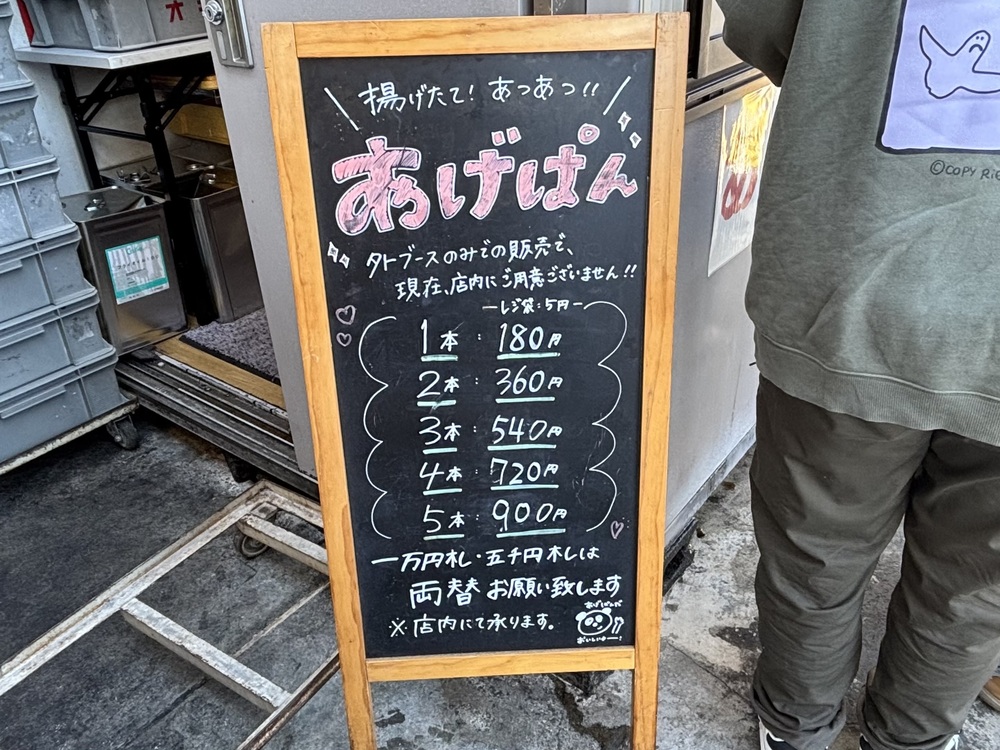 揚げたて! あつあつ!!
あげぱん
外ブースのみでの販売で、
現在、店内にご用意ございません!!
レジ袋:5円
1本:180円
2本:360円
3本:540円
4本:720円
5本:900円
一万円札・五千円札は
両替お願い致します
※店内にて承ります。
あげぱんだ
おいしいよー!
©COPY RIG